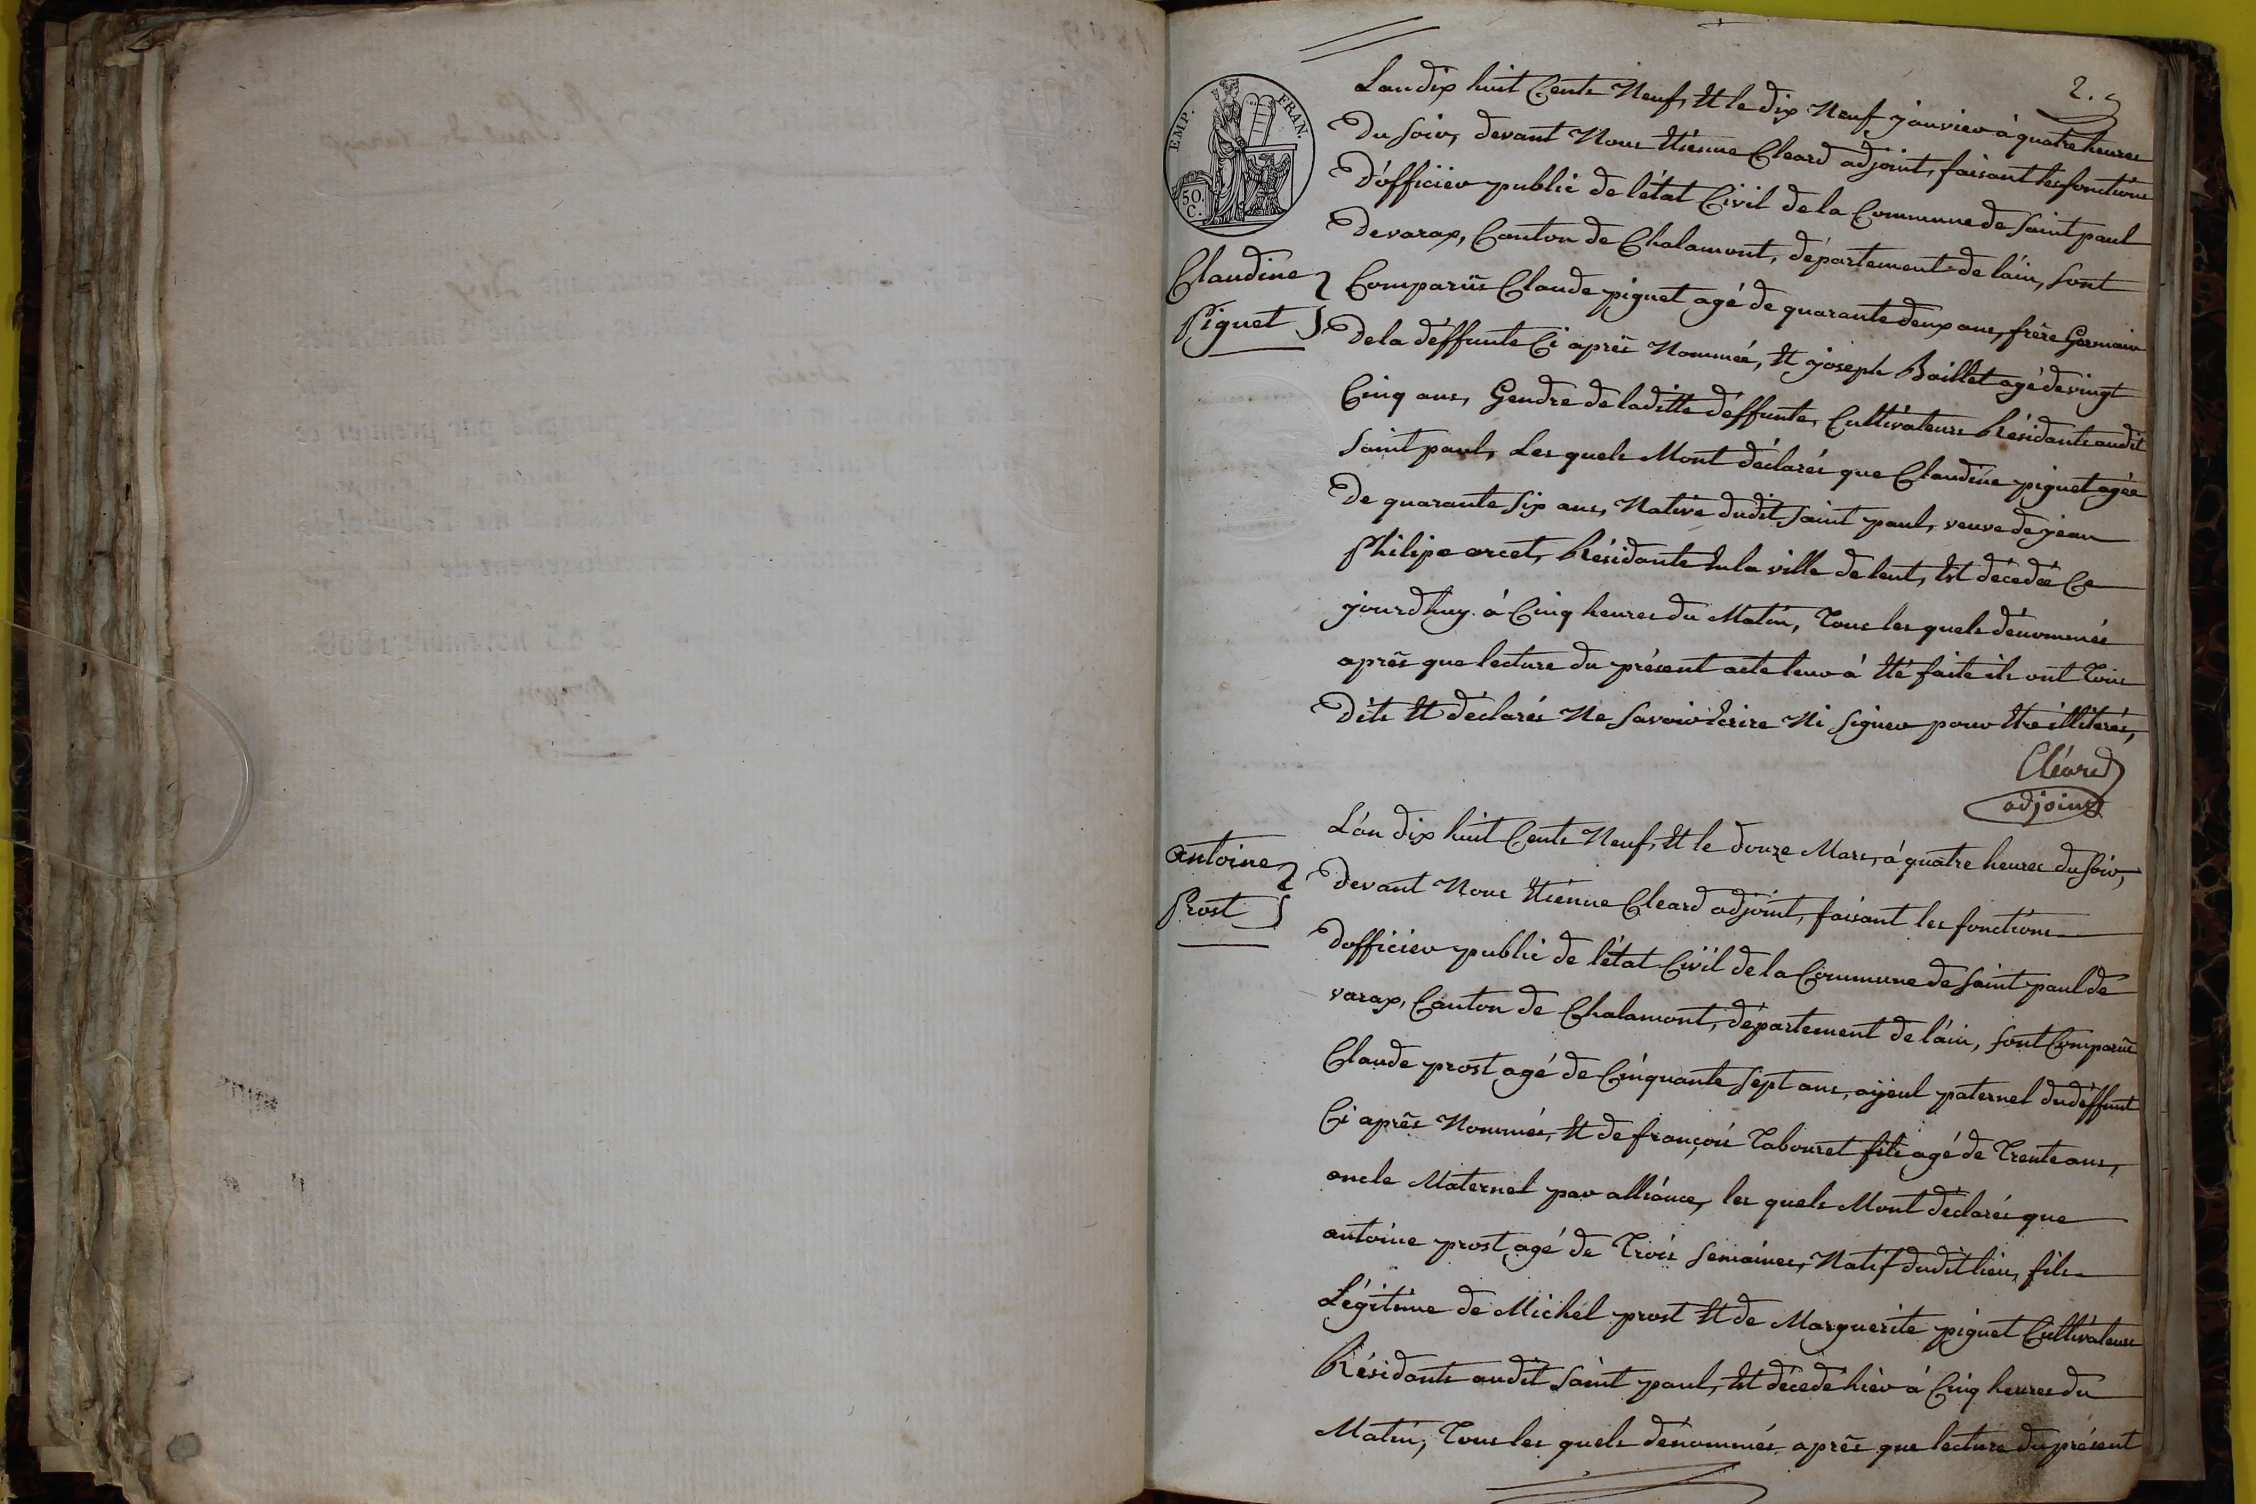 2.
EMP. FRAN.
50. C.
Lan dix huit Cents Neuf, Et le dix Neuf janvier à quatre heures
Du soir, devant Nous Etienne Cleard adjoint, faisant les fonctions
D'officier public de l'état Civil de la Commune de Saint paul
De varax, Canton de Chalamont, département de l'ain, sont
Claudine
Piguet
Comparûs Claude piguet agé de quarante deux ans, frère Germain
De la déffunte Ci après Nommée, Et joseph Baillet agé de vingt
Cinq ans, Gendre de laditte déffunte, Cultivateurs Résidants audit
Saint paul, Les quels Mont déclarés que Claudine piguet agée
De quarante Six ans, Native dudit Saint paul, veuve de jean
Philipe arcet, Résidante En la ville de lent, Est décedée Ce
jourdhuy à Cinq heures du Matin, Tous les quels dénommés
après que lecture du présent acte leur à Eté faite ils ont Tous
Dits Et déclarés Ne Savoir Ecrire Ni Signer pour Etre illiterés,
Cléard
adjoint
Antoine
Prost
L'an dix huit Cents Neuf, Et le douze Mars, à quatre heures du Soir,
Devant Nous Etienne Cleard adjoint, faisant les fonctions
Dofficier public de l'état Civil de la Commune de Saint paul de
varax, Canton de Chalamont, département de l'ain, sont Comparûs
Claude prost agé de Cinquante Sept ans, ayeul paternel du déffunt
Ci après Nommés, Et de françois Tabouret fils agé de Trente ans,
oncle Maternel par alliance, les quels Mont déclarés que
antoine prost, agé de Trois Semaines, Natif dudit lieu, fils
Légitime de Michel prost Et de Marguerite piguet Cultivateurs
Résidants audit Saint paul, Est décedé hièr à Cinq heures du
Matin, Tous les quels dénommés après que lecture du présent